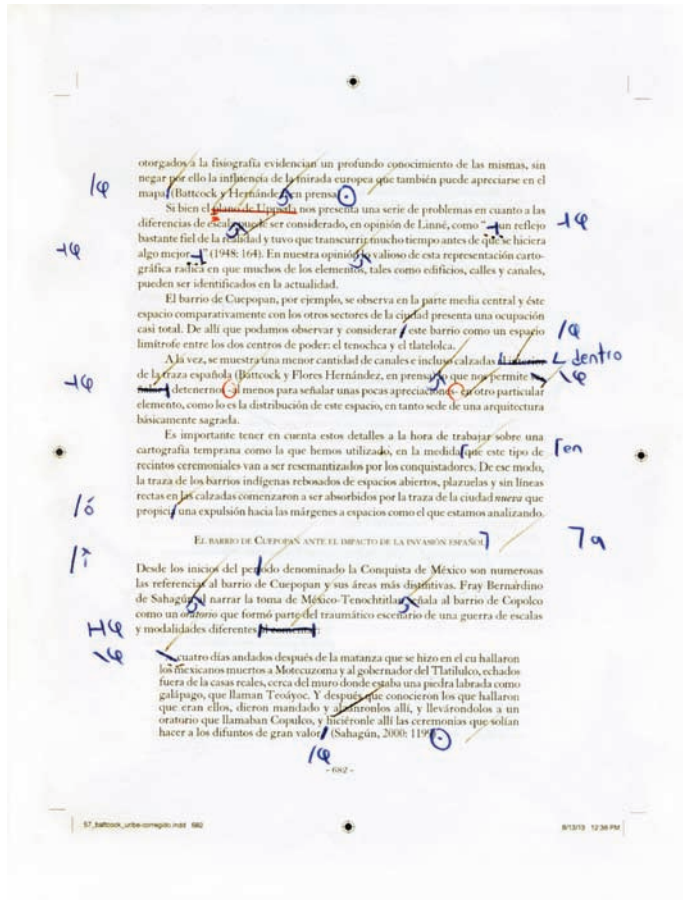 otorgados a la fisiografía evidencian un profundo conocimiento de las mismas, sin
negar por ello la influencia de la mirada europea que también puede apreciarse en el
mapa (Battcock y Hernández en prensa
Si bien el plano de Uppsala nos presenta una serie de problemas en cuanto a las
diferencias de escala puede ser considerado, en opinión de Linné, como "... un reflejo
bastante fiel de la realidad y tuvo que transcurrir mucho tiempo antes de que se hiciera
algo mejor..." (1948: 164). En nuestra opinión lo valioso de esta representación carto-
gráfica radica en que muchos de los elementos, tales como edificios, calles y canales,
pueden ser identificados en la actualidad.
El barrio de Cuepopan, por ejemplo, se observa en la parte media central y éste
espacio comparativamente con los otros sectores de la ciudad presenta una ocupación
casi total. De allí que podamos observar y considerar este barrio como un espacio
limítrofe entre los dos centros de poder: el tenochca y el tlatelolca.
A la vez, se muestra una menor cantidad de canales e incluso calzadas dentro
de la traza española (Battcock y Flores Hernández, en prensa) que nos permite
detenernos -al menos para señalar unas pocas apreciaciones- en otro particular
elemento, como lo es la distribución de este espacio, en tanto sede de una arquitectura
básicamente sagrada.
Es importante tener en cuenta estos detalles a la hora de trabajar sobre una
cartografía temprana como la que hemos utilizado, en la medida que este tipo de en
recintos ceremoniales van a ser resemantizados por los conquistadores. De ese modo,
la traza de los barrios indígenas rebosados de espacios abiertos, plazuelas y sin líneas
rectas en las calzadas comenzaron a ser absorbidos por la traza de la ciudad nueva que
ó propici una expulsión hacia las márgenes a espacios como el que estamos analizando.
El barrio de Cuepopan ante el impacto de la invasión español a
Desde los inicios del periodo denominado la Conquista de México son numerosas
las referencias al barrio de Cuepopan y sus áreas más distintivas. Fray Bernardino
de Sahagún al narrar la toma de México-Tenochtitlan señala al barrio de Copolco
como un oratorio que formó parte del traumático escenario de una guerra de escalas
y modalidades diferentes
cuatro días andados después de la matanza que se hizo en el cu hallaron
los mexicanos muertos a Motecuzoma y al gobernador del Tlatilulco, echados
fuera de la casas reales, cerca del muro donde estaba una piedra labrada como
galápago, que llaman Teoáyoc. Y después que conocieron los que hallaron
que eran ellos, dieron mandado y alzáronlos allí, y llevárondolos a un
oratorio que llamaban Copulco, y hiciéronle allí las ceremonias que solían
hacer a los difuntos de gran valor (Sahagún, 2000: 119
- 682 -
57_battcock_uribe-corregido.indd 682
8/13/13 12:38 PM